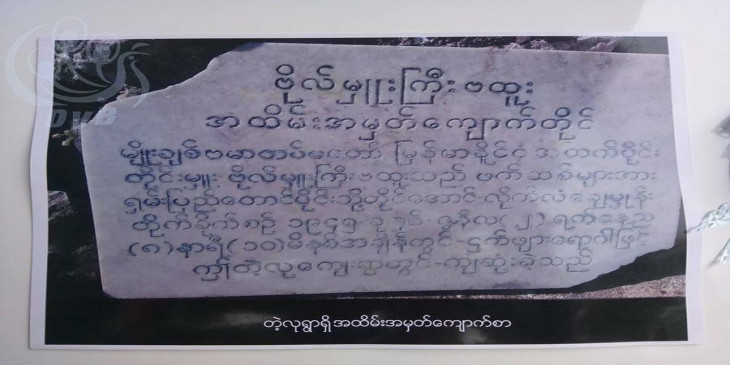 DVB
ဗိုလ်မှူးကြီးဗထူး
အထိမ်းအမှတ်ကျောက်တိုင်
မျိုးချစ်ဗမာတပ်မတော် မြန်မာနိုင်ငံ အထက်ပိုင်း
တိုင်းမှူး ဗိုလ်မှူးကြီးဗထူးသည် ဖက်ဆစ်များအား
ရှမ်းပြည်တောင်ပိုင်းသို့တိုင်အောင်လိုက်လံချေမှုန်း
တိုက်ခိုက်စဉ် ၁၉၄၅ ခုနှစ်-ဇွန်လ(၂)ရက်နေ့ည
(၈)နာရီ(၁၀)မိနစ်အချိန်တွင်-ငှက်ဖျားရောဂါဖြင့်
ဤတဲ့လုကျေးရွာတွင်-ကျဆုံးခဲ့သည်
တဲ့လုရွာရှိအထိမ်းအမှတ်ကျောက်စာ